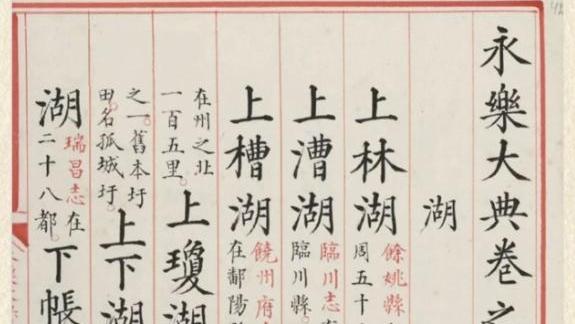 永樂大典卷之
湖
上林湖餘姚縣
周五十
上漕湖臨川志
臨川縣。
上槽湖饒州府
在鄱陽
在州之北
一百五里。上瓊湖
之一。舊本圩
田名孤城圩。上下湖
湖瑞昌志在
二十八都。下帳